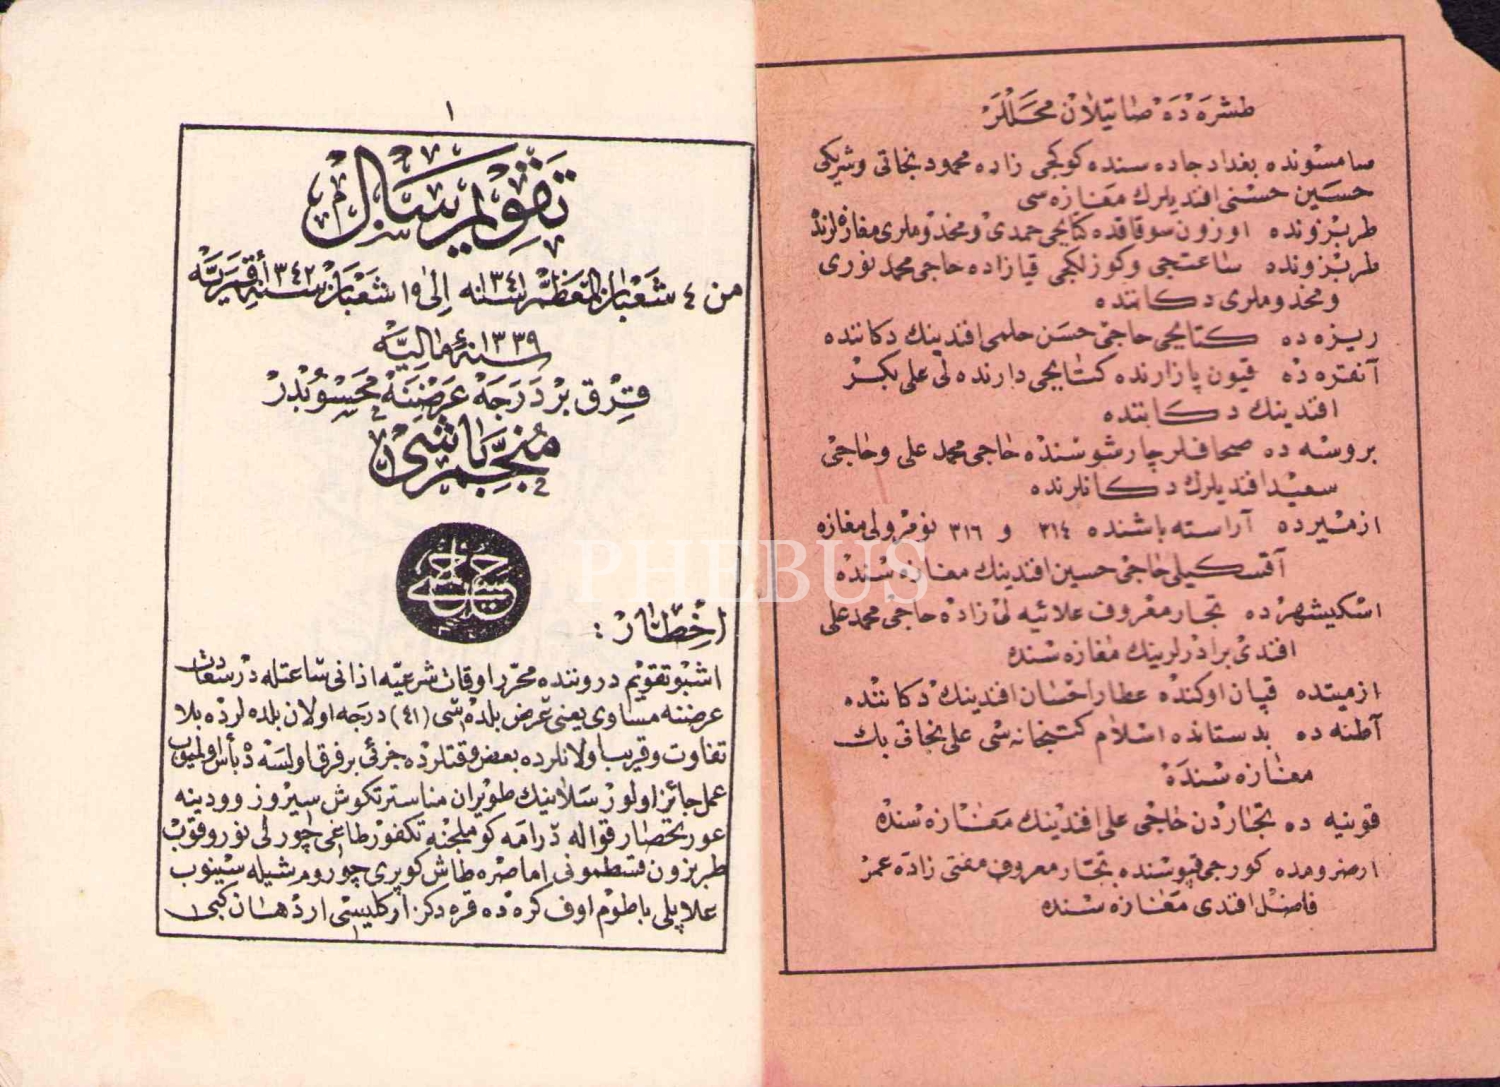 طشره ده صاتيلان محللر
سامسونده بغداد جاده سنده كوكجى زاده محمود نجاتى وشريكى
حسين حسنى افنديلرك مغازه سى
طربزونده اوزون سوقاقده كتابجى حمدى ومخدوملرى مغازه لرنده
طربزونده ساعتجى وكوزلكجى قيازاده حاجى محمد نورى
ومخدوملرى دكاننده
ريزه ده كتابجى حاجى حسن حلمى افندينك دكاننده
آنقره ده قيون پازارنده كتابجى دارنده لى على بكر
افندينك دكاننده
بروسه ده صحافلر چارشوسنده حاجى محمد على وحاجى
سعيد افنديلرك دكانلرنده
ازميرده آراسته باشنده ٣١٤ و ٣١٦ نومرولى مغازه
آقسكيلى حاجى حسين افندينك مغازه سنده
اسكيشهرده تجار معروف علائيه لى زاده حاجى محمد على
افندى برادرلرينك مغازه سنده
ازميتده قپان اوكنده عطار احسان افندينك دكاننده
آطنه ده بدستانده اسلام كتبخانه سى على نجاتى بك
مغازه سنده
قونيه ده تجاردن حاجى على افندينك مغازه سنده
ارضرومده كورجى قپوسنده تجار معروف مفتى زاده عمر
فاضل افندى مغازه سنده
١
تقويم سال
من ٤ شعبان المعظم سنه ١٣٤١ الى ١٥ شعبان سنه ١٣٤٢ قمريه
سنهٔ ماليه ١٣٣٩
قرق بر درجه عرضنه محسوبدر
منجم باشى
حسين حلمى
اخطار :
اشبو تقويم دروننده محرر اوقات شرعيه اذانى ساعتله درسعادت
عرضنه مساوى يعنى عرض بلده سى (٤١) درجه اولان بلده لرده بلا
تفاوت وقريب اولانلرده بعض وقتلرده جزئى برفرق اولسه ده بأس اولميوب
عمل جائز اولور سلانيك طويران مناستر تكوش سيروز وودينه
عورتحصار قواله درامه كوملجنه تكفورطاغى چورلى نوروقوب
طربزون قسطمونى اماصره طاش كوپرى چوروم شيله سينوب
علاپلى باطوم اوف كره ده قره دكز اركليسى اردهان كبى
PHEBUS